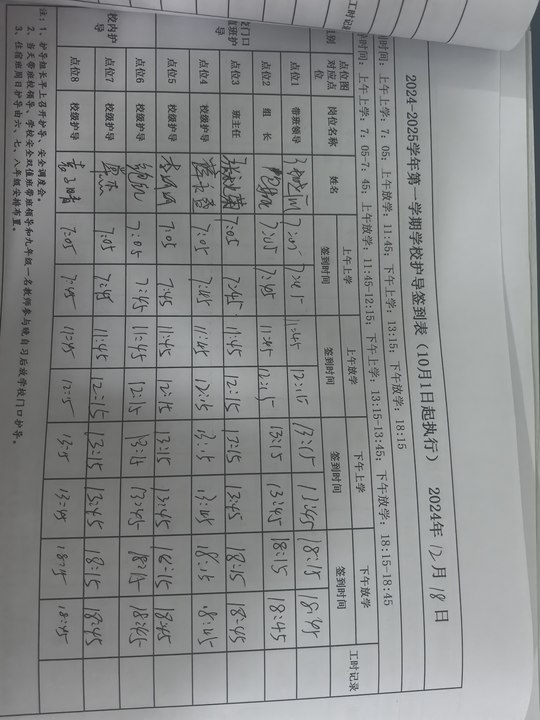 2024-2025学年第一学期学校护导签到表（10月1日起执行） 2024年12月18日
到时间：上午上学：7：05，上午放学：11:45；下午上学：13:15；下午放学：18:15
时间：上午上学：7：05-7：45；上午放学：11:45-12:15；下午上学：13:15-13:45；下午放学：18:15-18:45
点位图对应点位 岗位名称 姓名 上午上学签到时间 上午放学签到时间 下午上学签到时间 下午放学签到时间 工时记录
点位1 带班领导 7:05 7:45 11:45 12:15 13:15 13:45 18:15 18:45
点位2 组 长 7:05 7:45 11:45 12:15 13:15 13:45 18:15 18:45
点位3 班主任 7:05 7:45 11:45 12:15 13:15 13:45 18:15 18:45
点位4 校级护导 7:05 7:45 11:45 12:15 13:15 13:45 18:15 18:45
点位5 校级护导 7:05 7:45 11:45 12:15 13:15 13:45 18:15 18:45
点位6 校级护导 7:05 7:45 11:45 12:15 13:15 13:45 18:15 18:45
点位7 校级护导 7:05 7:45 11:45 12:15 13:15 13:45 18:15 18:45
点位8 校级护导 7:05 7:45 11:45 12:15 13:15 13:45 18:15 18:45
校门口
值班护导
校内护导
注：1、护导组长早上召开护导、安全调度会。
2、当天带班校领导、学校安全双值班带班领导和九年级一名教师参与晚自习后放学校门口护导。
3、住宿班周日护导由六、七、八年级安排布置。
工时记录